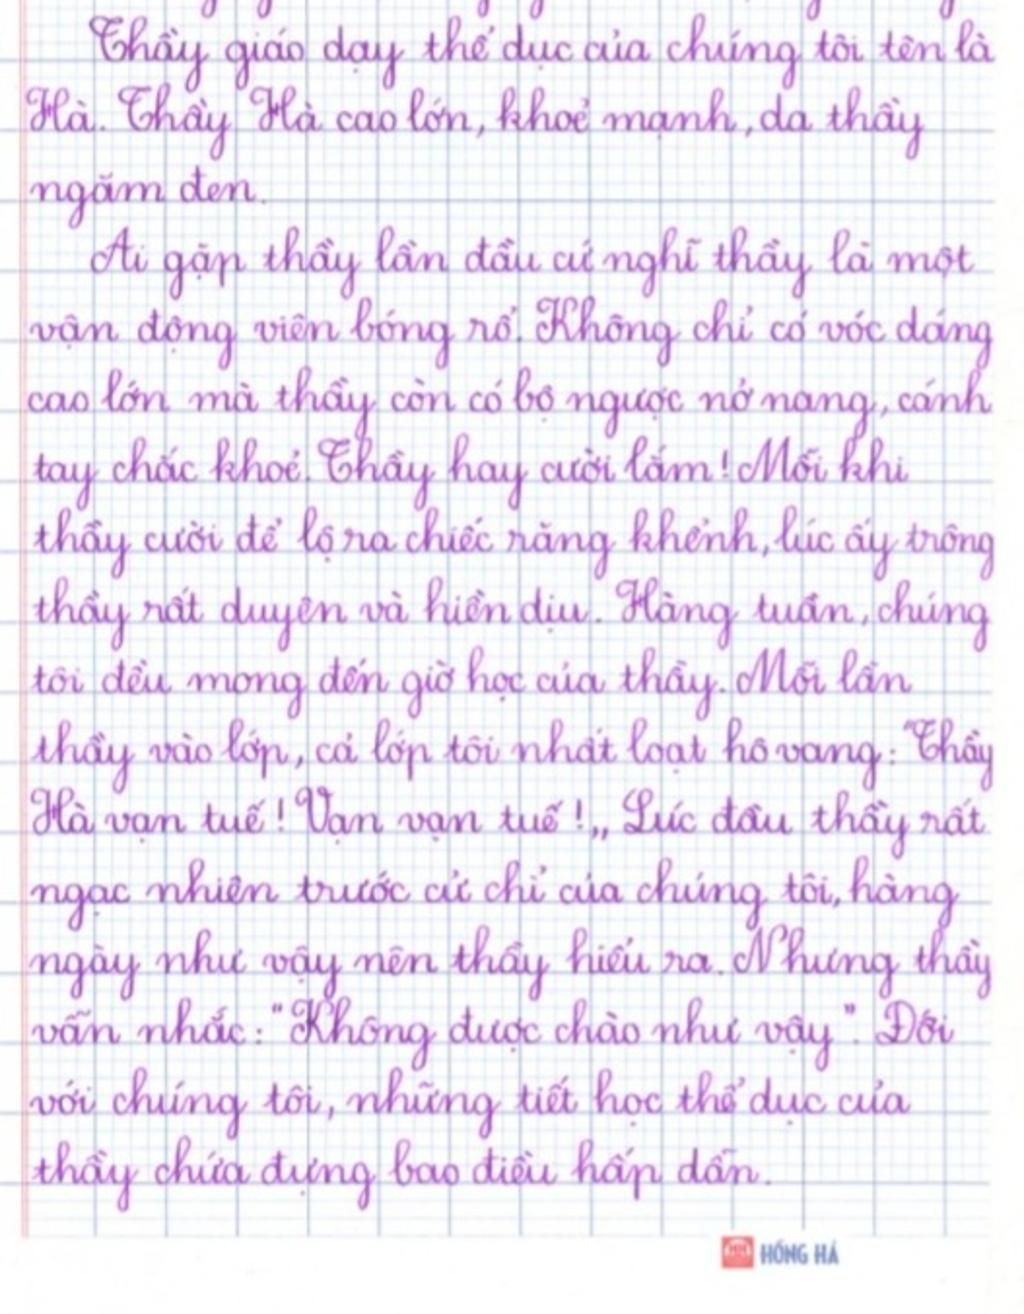 Thầy giáo dạy thể dục của chúng tôi tên là
Hà. Thầy Hà cao lớn, khoẻ mạnh, da thầy
ngăm đen.
Ai gặp thầy lần đầu cứ nghĩ thầy là một
vận động viên bóng rổ. Không chỉ có vóc dáng
cao lớn mà thầy còn có bộ ngược nở nang, cánh
tay chắc khoẻ. Thầy hay cười lắm! Mỗi khi
thầy cười để lộ ra chiếc răng khểnh, lúc ấy trông
thầy rất duyên và hiền dịu. Hàng tuần, chúng
tôi đều mong đến giờ học của thầy. Mỗi lần
thầy vào lớp, cả lớp tôi nhất loạt hô vang: "Thầy
Hà vạn tuế! Vạn vạn tuế!„ Lúc đầu thầy rất
ngạc nhiên trước cử chỉ của chúng tôi, hàng
ngày như vậy nên thầy hiểu ra. Nhưng thầy
vẫn nhắc: "Không được chào như vậy". Đối
với chúng tôi, những tiết học thể dục của
thầy chứa đựng bao điều hấp dẫn.
HỒNG HÀ